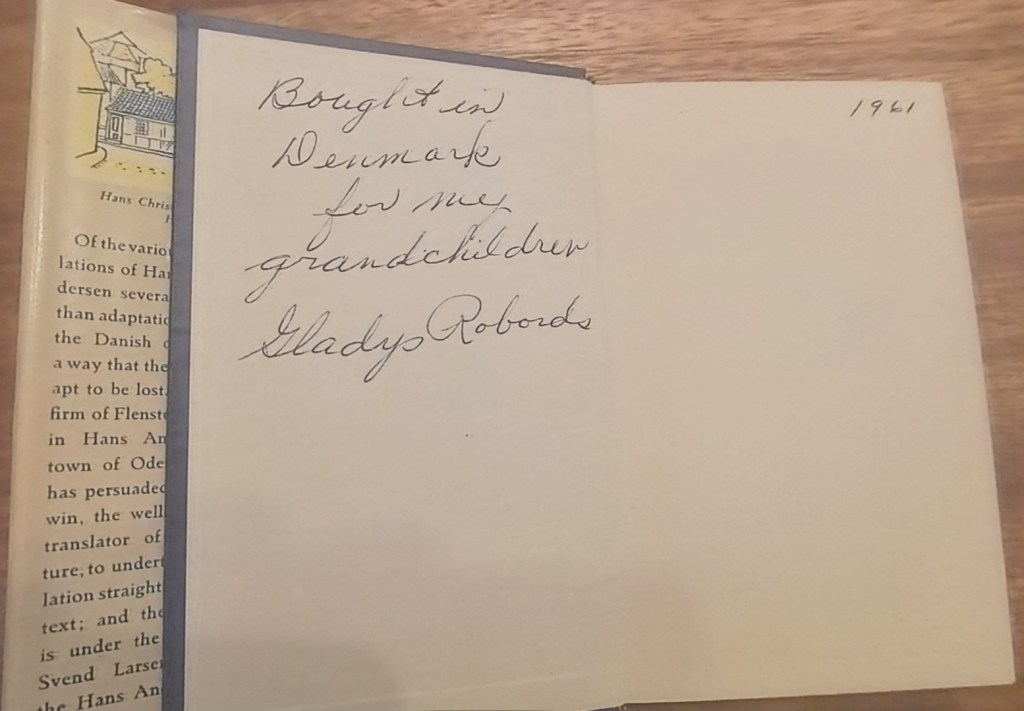 Hans Chris
H
Of the vario
lations of Ha
dersen severa
than adaptatio
the Danish
a way that the
apt to be lost.
firm of Flenste
in Hans An
town of Ode
has persuaded
win, the well
translator of
ture, to under
lation straight
text; and the
is under the
Svend Larse
the Hans An
Bought in
Denmark
for my
grandchildren
Gladys Robords
1961